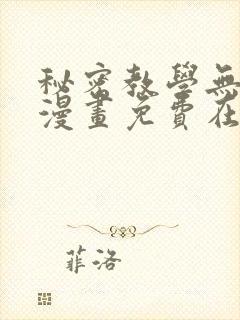 秘密教學無
漫畫免費在
菲洛